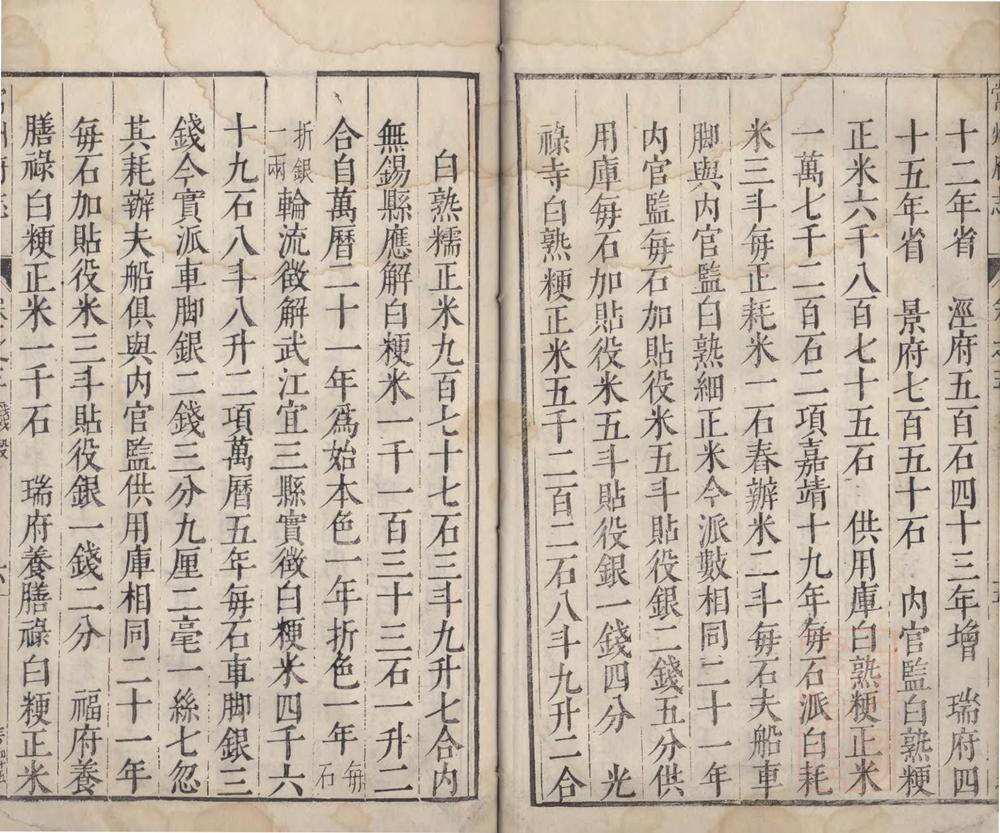 十二年省　涇府五百石四十三年增　瑞府四
十五年省　景府七百五十石　內官監白熟粳
正米六千八百七十五石　供用庫白熟粳正米
一萬七千二百石二項嘉靖十九年每石派白耗
米三斗每正耗米一石舂辦米二斗每石夫船車
脚與內官監白熟細正米今派數相同二十一年
內官監每石加貼役米五斗貼役銀二錢五分供
用庫每石加貼役米五斗貼役銀一錢四分　光
祿寺白熟粳正米五千二百二石八斗九升二合
白熟糯正米九百七十七石三斗九升七合內
無錫縣應解白粳米一千一百三十三石一升二
合自萬曆二十一年爲始本色一年折色一年每石
折銀一兩輪流徵解武江宜三縣實徵白粳米四千六
十九石八斗八升二項萬曆五年每石車脚銀三
錢今實派車脚銀二錢三分九厘二毫一絲七忽
其耗辦夫船俱與內官監供用庫相同二十一年
每石加貼役米三斗貼役銀一錢二分　福府養
膳祿白粳正米一千石　瑞府養膳祿白粳正米